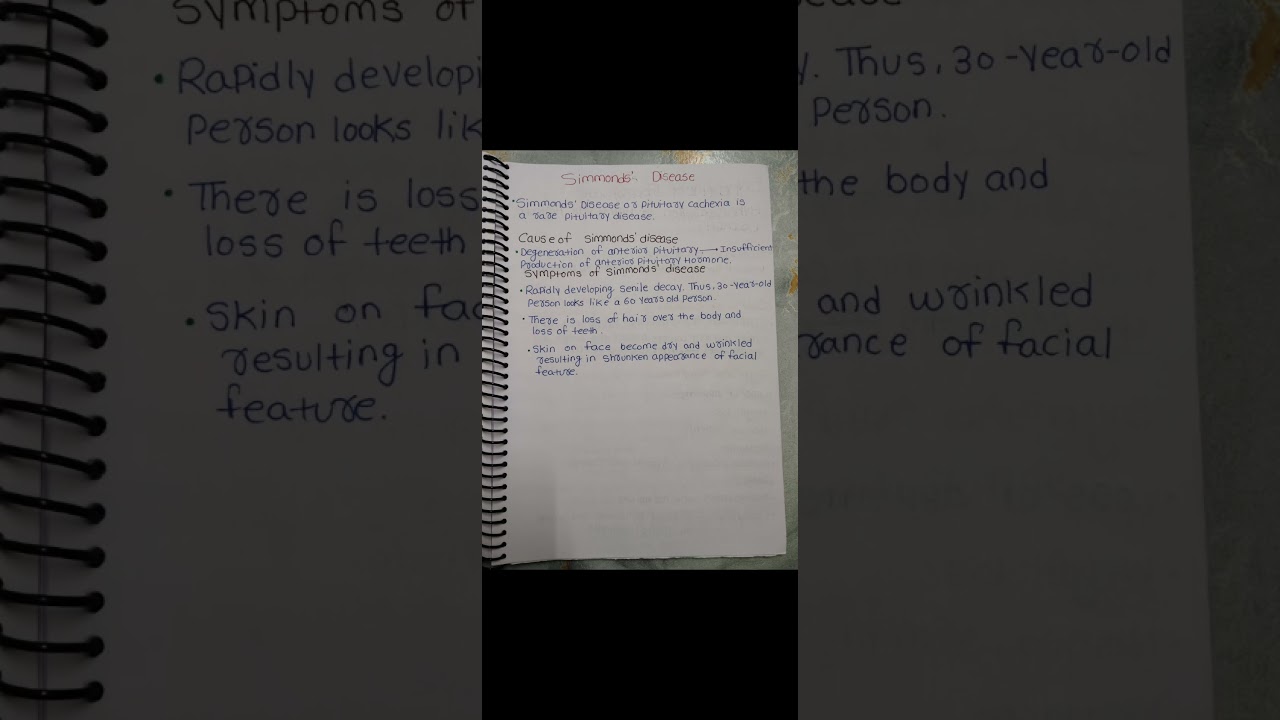 Simmonds' Disease
• Simmonds' Disease or Pituitary cachexia is
a rare Pituitary disease.
Cause of Simmonds' disease
• Degeneration of anterior Pituitary → Insufficient
Production of anterior Pituitary Hormone.
Symptoms of Simmonds' disease
• Rapidly developing senile decay. Thus, 30-year-old
Person looks like a 60 years old Person.
• There is loss of hair over the body and
loss of teeth.
• Skin on face become dry and wrinkled
resulting in Shrunken appearance of facial
feature.